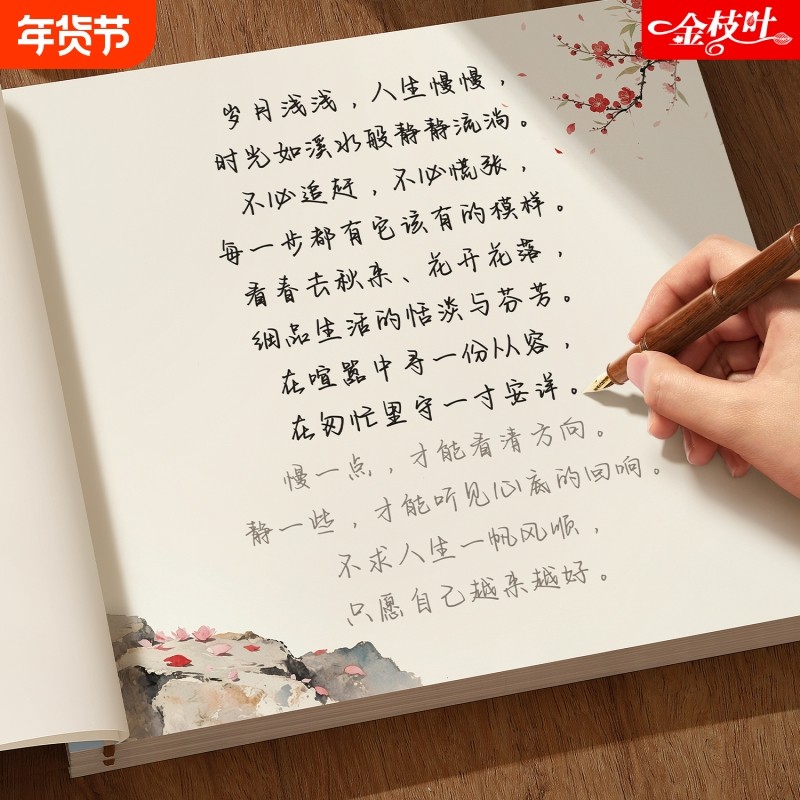 年货节
金枝叶
岁月浅浅，人生慢慢，
时光如溪水般静静流淌。
不必追赶，不必慌张，
每一步都有它该有的模样。
看春去秋来、花开花落，
细品生活的恬淡与芬芳。
在喧嚣中寻一份从容，
在匆忙里守一寸安详。
慢一点，才能看清方向。
静一些，才能听见心底的回响。
不求人生一帆风顺，
只愿自己越来越好。